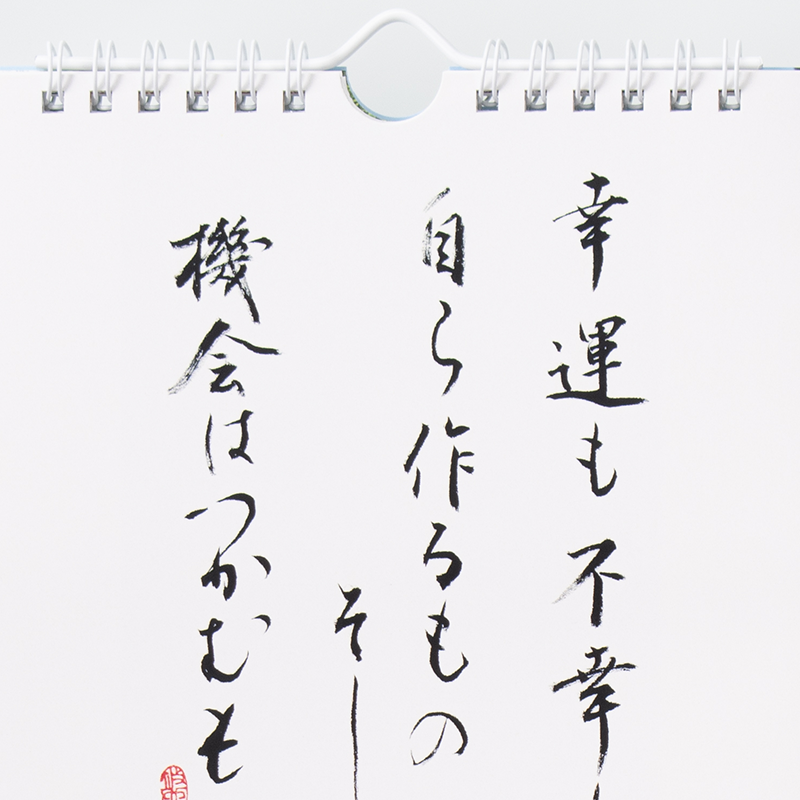 幸運も不幸
自ら作るもの
そし
機会はつかむも